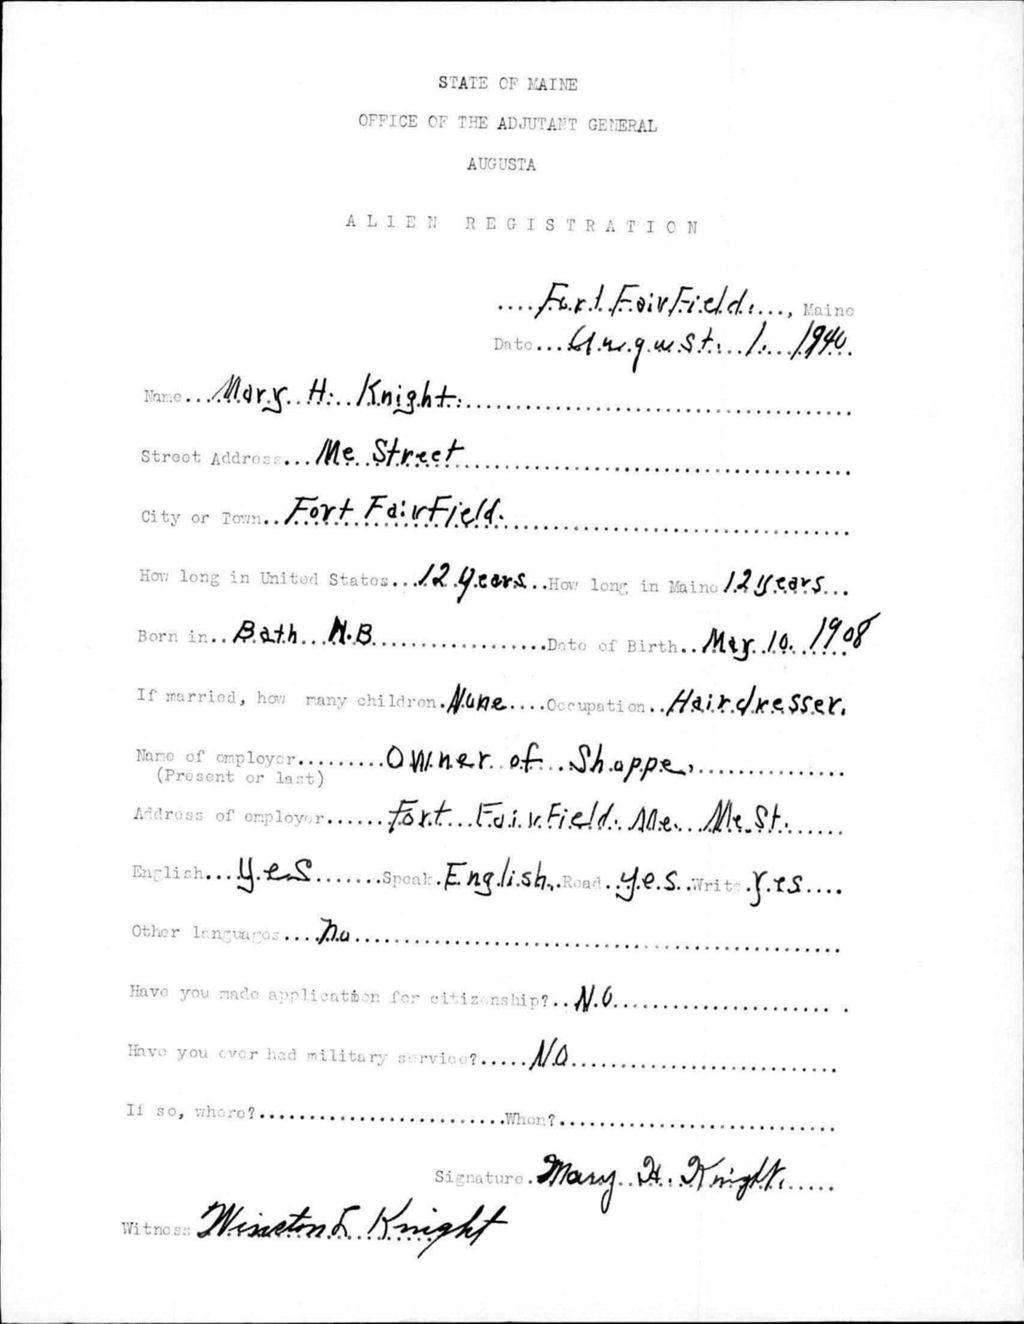 STATE OF MAINE
OFFICE OF THE ADJUTANT GENERAL
AUGUSTA
ALIEN REGISTRATION
....Fort FairField., Maine
Date...August. 1. 1940.
Name...Mary H. Knight.
Street Address...Me Street
City or Town..Fort FairField.
How long in United States...12 years..How long in Maine 12 years...
Born in..Bath N.B.Date of Birth..May 10. 1908
If married, how many children.None....Occupation..Hairdresser.
Name of employer.........Owner of Shoppe.
(Present or last)
Address of employer......Fort FairField. Me. Me. St.
English...yes.......Speak.English..Read..yes..Write.yes....
Other languages....no
Have you made application for citizenship?..No
Have you ever had military service?.....No
If so, where?........................When?............................
Signature.Mary H. Knight.
Witness Winston L Knight